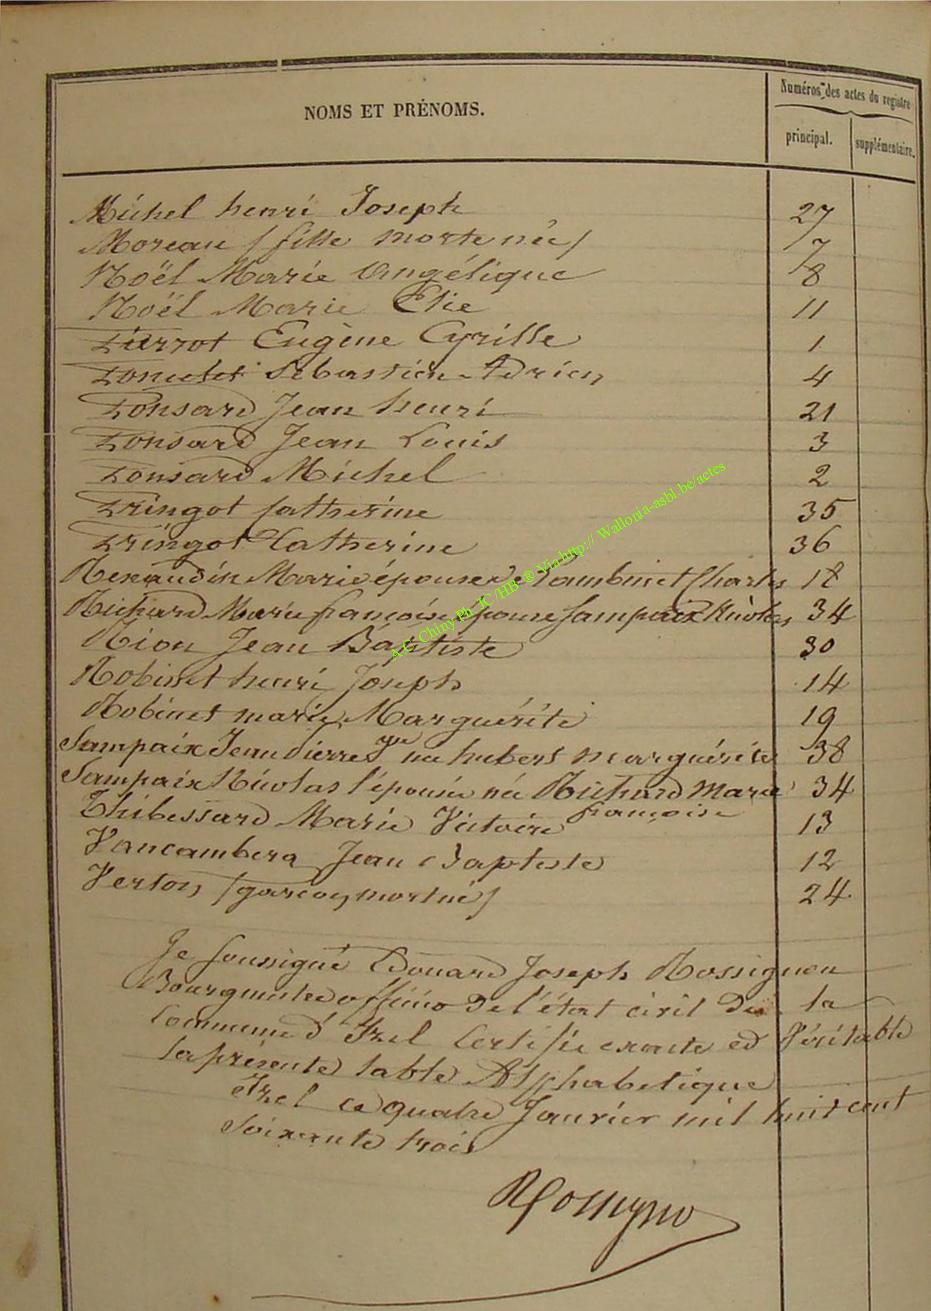 NOMS ET PRÉNOMS.
Numéros des actes du registre
principal.
supplémentaire.
Michel henri Joseph 27
Moreau (fille mortenée) 7
Noël Marie Angélique 8
Noël Marie Elie 11
Pierrot Eugène Cyrille 1
Poncelet Sébastien Adrien 4
Ponsard Jean henri 21
Ponsard Jean Louis 3
Ponsard Michel 2
Pringot Catherine 35
Pringot Catherine 36
Renaudin Marie épouse de Charles 18
Richard Marie françoise épouse Sampaix Nicolas 34
Rion Jean Baptiste 30
Robinet henri Joseph 14
Robinet marie Marguérite 19
Sampaix Jean Pierre né hubert marguérite 38
Sampaix Nicolas l'épouse née Richard Marie 34
françoise
Thibessard Marie Victoire 13
Vancamberg Jean Baptiste 12
Verlon (garçon mortné) 24
Je soussigné Edouard Joseph Rossignon
Bourgmestre officier de l'état civil de la
Commune d'Izel Certifie exacte et Véritable
la présente table Alphabétique
Izel ce quatre Janvier mil huit cent
Soixante trois
Rossignon
A.C. Chiny Ph. JC /HB @ Via http:// Wallonia-asbl.be/actes